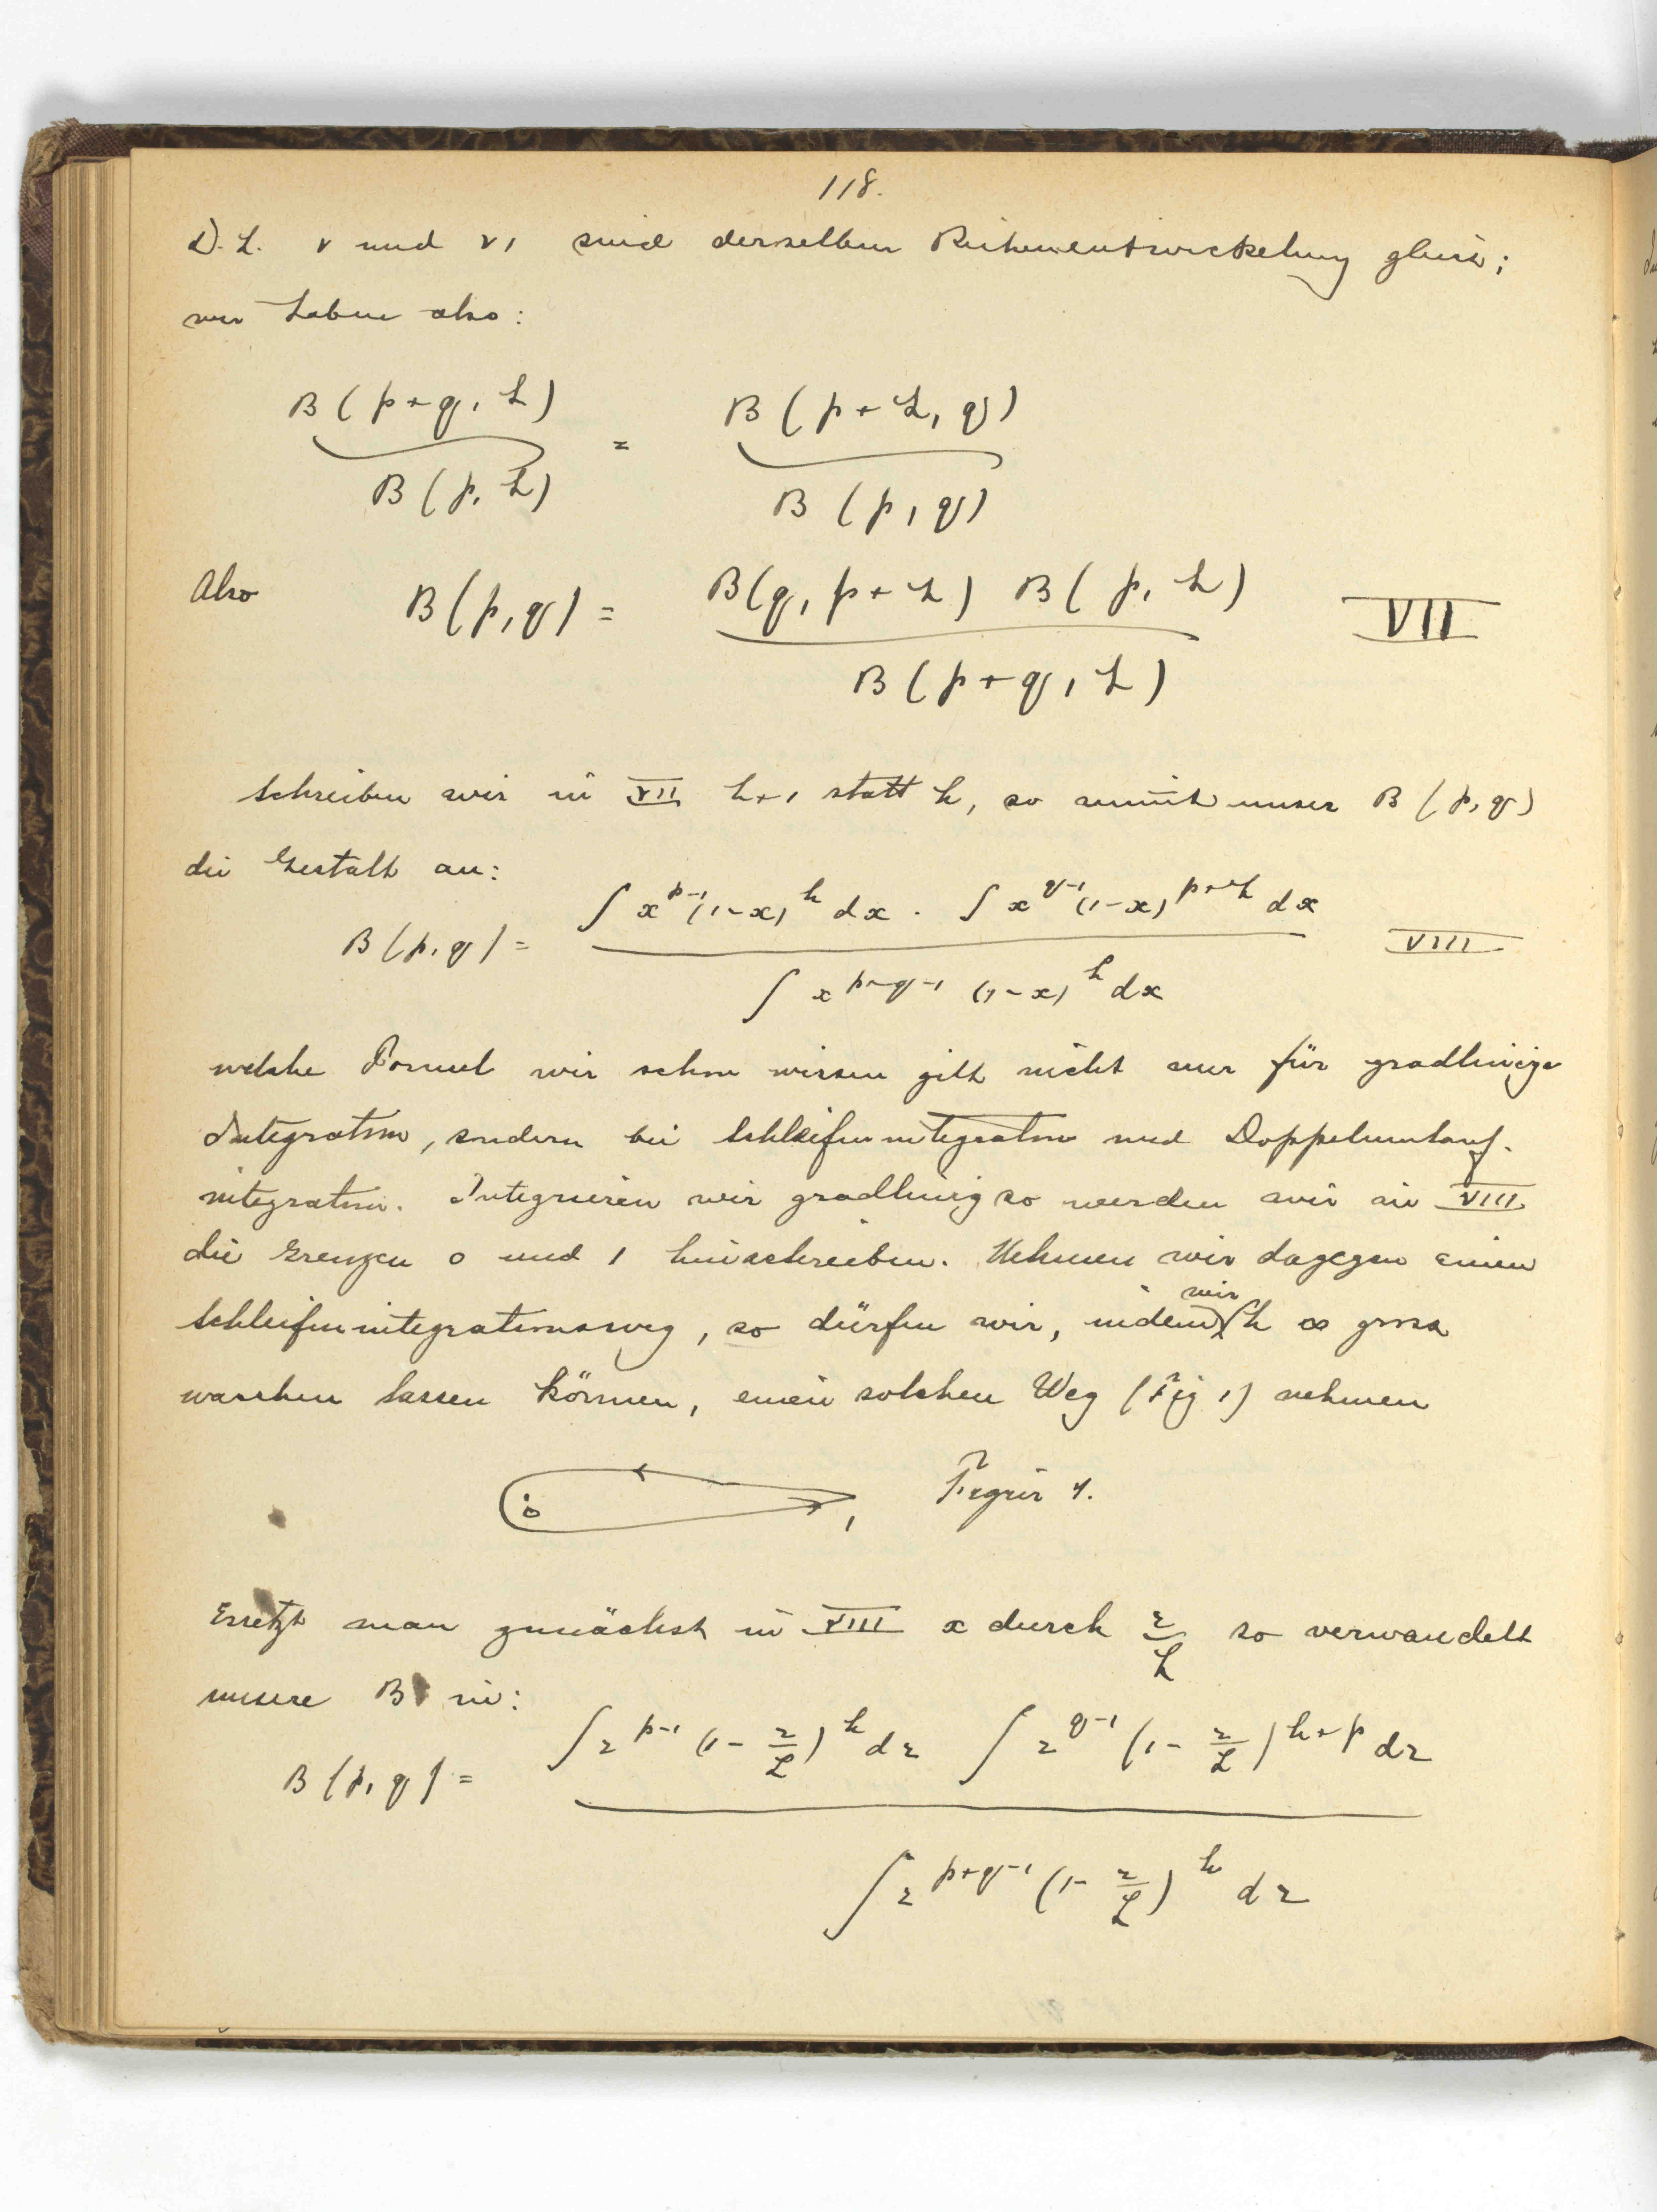 118.
D. h. V und VI sind derselben Reihenentwickelung gleich;
wir haben also:
B(p+q, h) / B(p, h) = B(p+h, q) / B(p, q)
Also B(p,q) = B(q, p+h) B(p, h) / B(p+q, h) VII
Schreiben wir in VII h+1 statt h, so nimmt unser B(p,q)
die Gestalt an:
B(p,q) = ∫ x^{p-1} (1-x)^h dx . ∫ x^{q-1} (1-x)^{p+h} dx / ∫ x^{p+q-1} (1-x)^h dx VIII
welche Formel wir schon wissen gilt nicht nur für gradlinige
Integration, sondern bei Schleifenintegration und Doppelumlauf-
integration. Integrieren wir gradlinig so werden wir in VIII
die Grenzen 0 und 1 hinschreiben. Nehmen wir dagegen einen
Schleifenintegrationsweg, so dürfen wir, indem wir h ∞ gross
wachsen lassen können, einen solchen Weg (Fig 1) nehmen
0 1 Figur 1.
Ersetzt man zunächst in VIII x durch z/h so verwandelt
unsere B in:
B(p,q) = ∫ z^{p-1} (1 - z/h)^h dz ∫ z^{q-1} (1 - z/h)^{h+p} dz / ∫ z^{p+q-1} (1 - z/h)^h dz